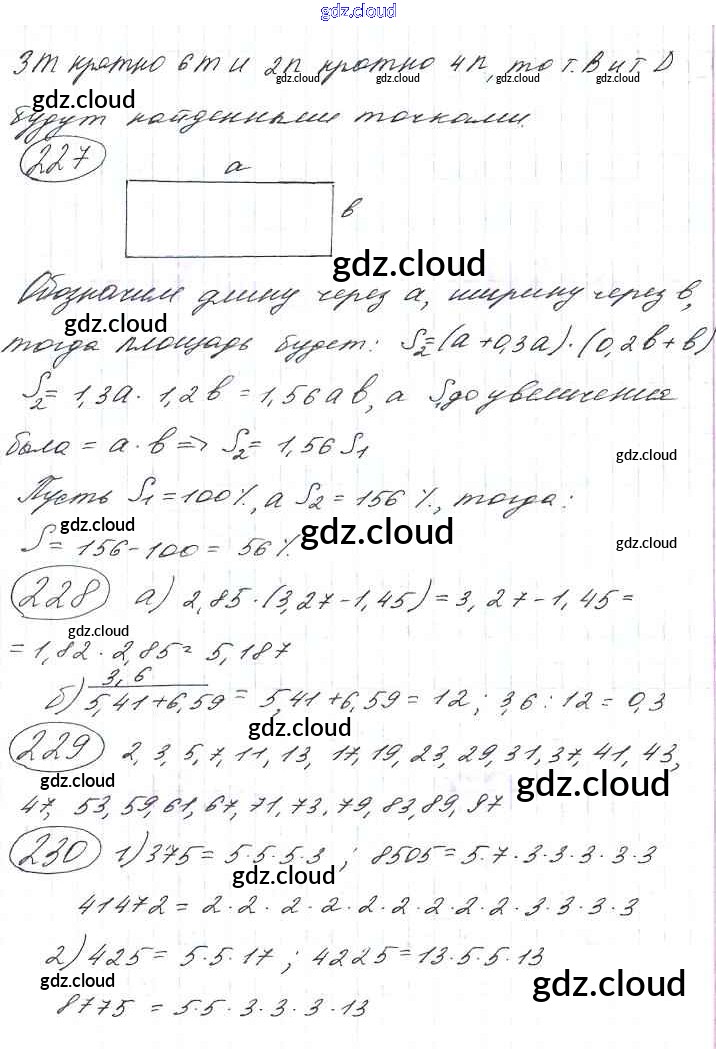 gdz.cloud
3m кратно 6m и 2n кратно 4n, то т. B и т. D
gdz.cloud gdz.cloud gdz.cloud
gdz.cloud
будут найденными точками.
gdz.cloud
227
a
b
gdz.cloud
Обозначим длину через a, ширину через b,
gdz.cloud
тогда площадь будет: S₂=(a+0,3a)·(0,2b+b)
S₂= 1,3a · 1,2b = 1,56ab, а S₁ до увеличения
была = a·b => S₂= 1,56 S₁
gdz.cloud
Пусть S₁=100%, а S₂=156%, тогда:
gdz.cloud gdz.cloud
S= 156-100= 56%
gdz.cloud
228 а) 2,85·(3,27-1,45)=3,27-1,45=
gdz.cloud
=1,82·2,85= 5,187
б) 3,6/5,41+6,59 = 5,41+6,59=12; 3,6:12=0,3
gdz.cloud
229 2, 3, 5, 7, 11, 13, 17, 19, 23, 29, 31, 37, 41, 43,
gdz.cloud gdz.cloud
47, 53, 59, 61, 67, 71, 73, 79, 83, 89, 97
230 1) 375= 5·5·5·3; 8505=5·7·3·3·3·3·3
gdz.cloud gdz.cloud
41472= 2·2·2·2·2·2·2·2·2·3·3·3·3
2) 425= 5·5·17; 4225=13·5·5·13
gdz.cloud gdz.cloud
8775 = 5·5·3·3·3·13